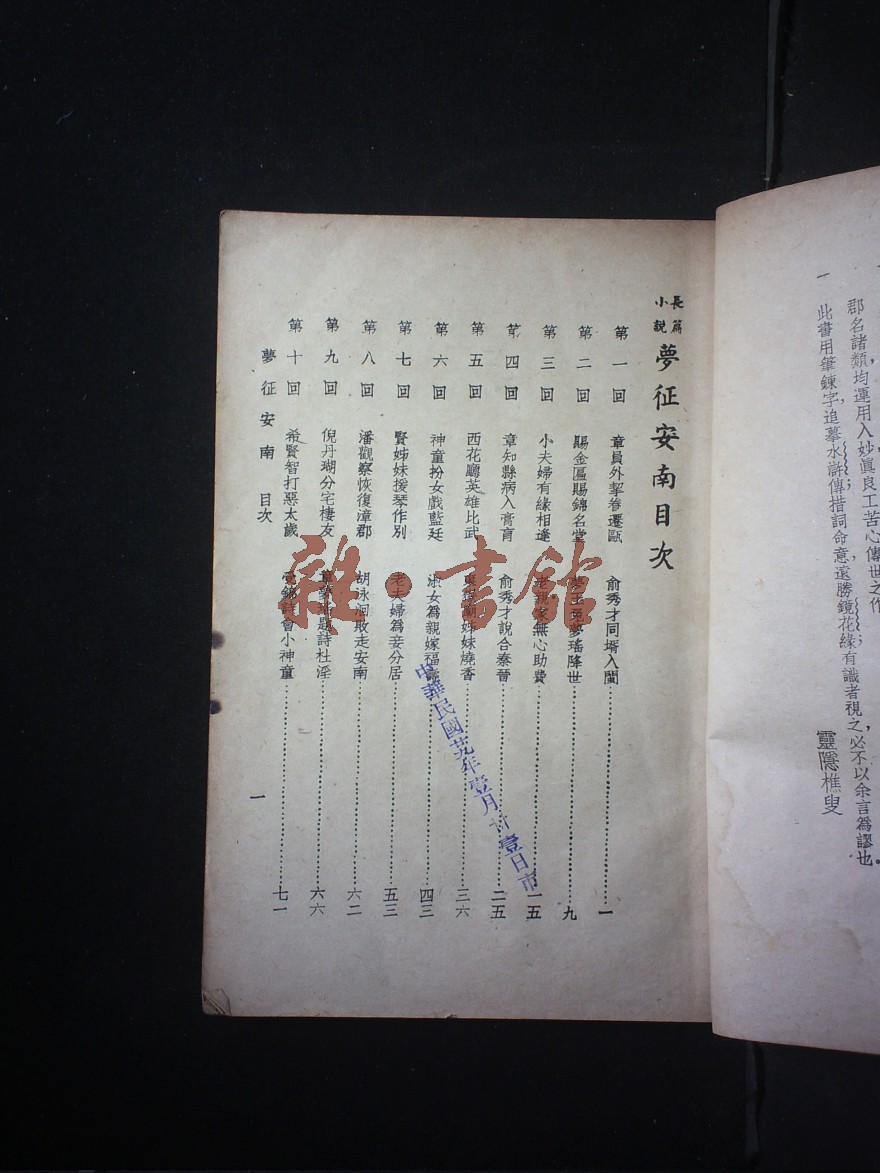 郡名諸類，均運用入妙眞良工苦心傳世之作
一 此書用筆鍊字追摹水滸傳措詞命意遠勝鏡花緣有識者視之，必不以余言爲謬也。
靈隱樵叟
長篇小說 夢征安南目次
第一回 章員外挈眷遷甌 俞秀才同壻入闈 一
第二回 賜金匾賜錦名堂 夢玉兎夢瑤降世 九
第三回 小夫婦有緣相逢 老親家無心助費 一五
第四回 章知縣病入膏肓 俞秀才說合秦晉 二五
第五回 西花廳英雄比武 東 姊妹燒香 三六
第六回 神童扮女戲藍廷 淑女爲親嫁福 四三
第七回 賢姊妹援琴作別 老夫婦爲妾分居 五三
第八回 潘觀察恢復漳郡 胡泳洄敗走安南 六二
第九回 倪丹瑚分宅棲友 夢瑤題詩杜淫 六六
第十回 希賢智打惡太歲 錦詩會小神童 七一
夢征安南 目次
一
中華民國廿九年壹月廿壹日市
雜·書館